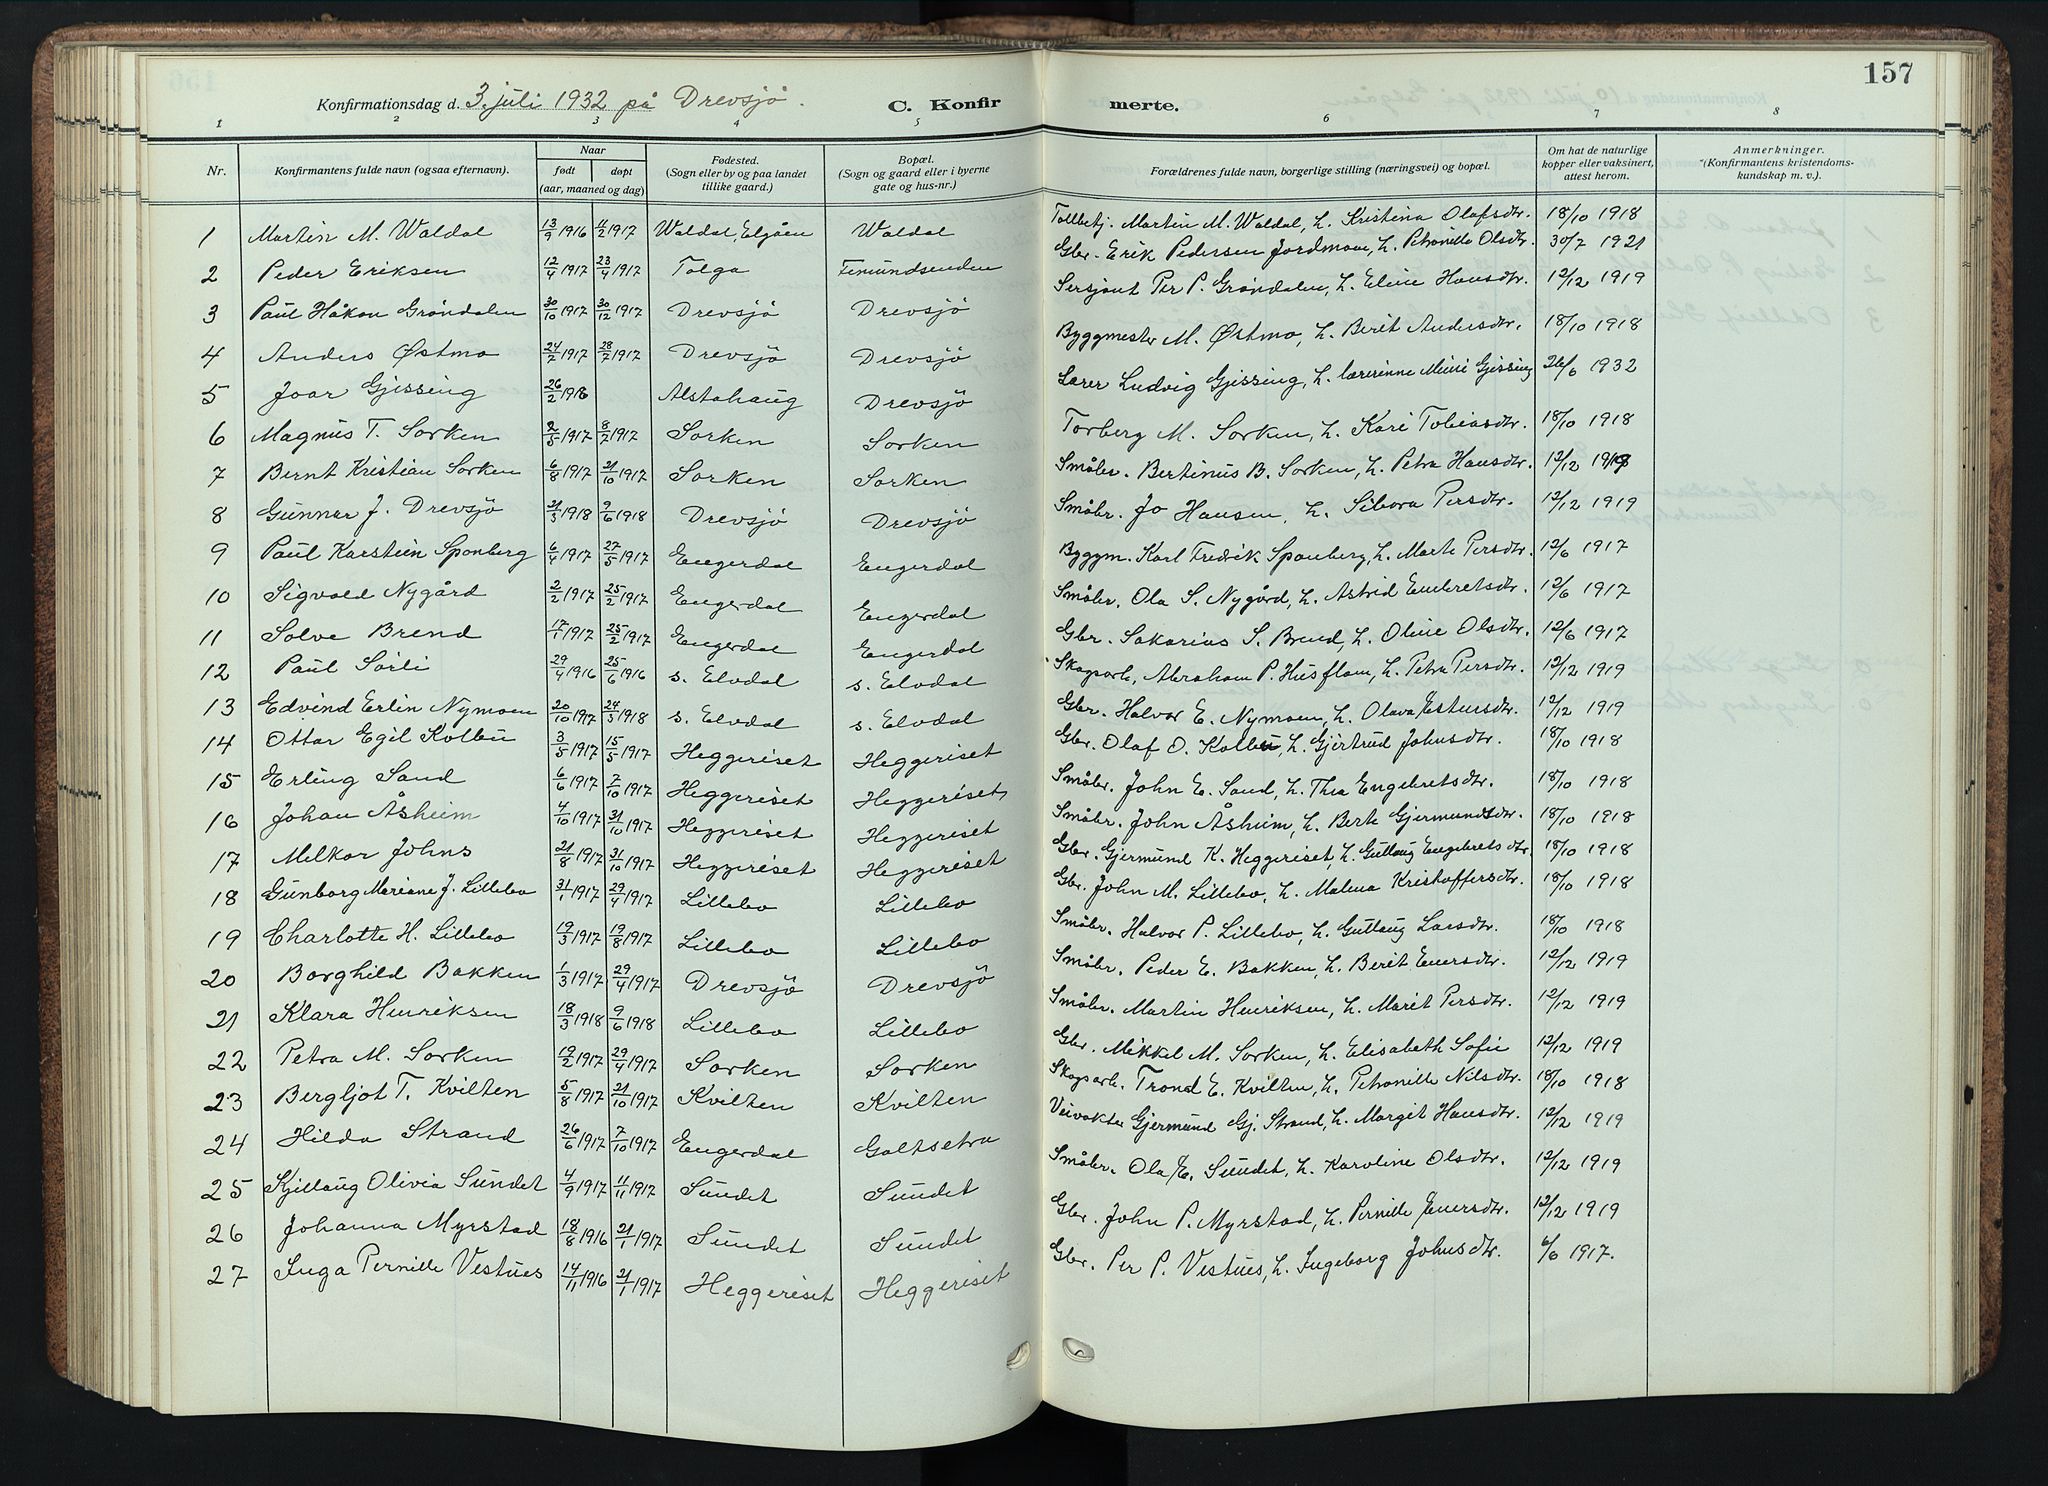 157
Konfirmationsdag d. 3. juli 1932 på Drevsjö. C. Konfirmerte.
1 2 3 4 5 6 7 8
Nr. Konfirmantens fulde navn (ogsaa efternavn). Naar født døpt (aar, maaned og dag) Fødested. (Sogn eller by og paa landet tillike gaard.) Bopæl. (Sogn og gaard eller i byerne gate og hus-nr.) Forældrenes fulde navn, borgerlige stilling (næringsvei) og bopæl. Om hat de naturlige kopper eller vaksinert, attest herom. Anmerkninger. (Konfirmantens kristendomskundskap m. v.).
1 Martin M. Waldal 13/9 1916 11/2 1917 Waldal, Elgåen Waldal Tollbetj. Martin M. Waldal, h. Kristina Olafsdtr. 18/10 1918
2 Peder Eriksen 12/4 1917 23/4 1917 Tolga Femundsenden Gbr. Erik Pedersen Jordmoen, h. Petronille Olsdtr. 30/7 1921
3 Paul Håkon Gröndalen 30/10 1917 30/12 1917 Drevsjö Drevsjö Sersjant Per P. Gröndalen, h. Eline Hansdtr. 12/12 1919
4 Anders Østmo 24/2 1917 28/7 1917 Drevsjö Drevsjö Byggmester M. Østmo, h. Berit Andersdtr. 18/10 1918
5 Joar Gjessing 26/2 1916 Alstahaug Drevsjö Lærer Ludvig Gjessing, h. lærerinne Mimi Gjessing 26/6 1932
6 Magnus T. Sorken 2/5 1917 8/7 1917 Sorken Sorken Torberg M. Sorken, h. Kari Tobiasdtr. 18/10 1918
7 Bernt Kristian Sorken 6/8 1917 21/10 1917 Sorken Sorken Småbr. Bertinus B. Sorken, h. Petra Hansdtr. 12/12 1919
8 Gunnar J. Drevsjö 21/3 1918 9/6 1918 Drevsjö Drevsjö Småbr. Jo Hansen, h. Sibora Persdtr. 12/12 1919
9 Paul Karstein Sponberg 6/4 1917 27/5 1917 Engerdal Engerdal Byggm. Karl Fredrik Sponberg, h. Marte Persdtr. 12/6 1917
10 Sigvald Nygård 2/2 1917 25/2 1917 Engerdal Engerdal Småbr. Ola S. Nygård, h. Astrid Embretsdtr. 12/6 1917
11 Solve Brend 17/1 1917 25/2 1917 Engerdal Engerdal Gbr. Sakarias S. Brend, h. Oline Olsdtr. 12/6 1917
12 Paul Sörli 29/4 1916 25/6 1916 s. Elvdal s. Elvdal Skogsarb. Abraham P. Husflom, h. Petra Persdtr. 12/12 1919
13 Edvind Erlin Nymoen 20/10 1917 24/3 1918 s. Elvdal s. Elvdal Gbr. Halvor E. Nymoen, h. Olava Jstursdtr. 12/12 1919
14 Ottar Egil Kolbu 3/5 1917 15/5 1917 Heggeriset Heggeriset Gbr. Olaf O. Kolbu, h. Gjertrud Johnsdtr. 18/10 1918
15 Erling Sand 6/6 1917 7/10 1917 Heggeriset Heggeriset Småbr. John E. Sand, h. Thea Engebretsdtr. 18/10 1918
16 Johan Åsheim 4/10 1917 31/10 1917 Heggeriset Heggeriset Småbr. John Åsheim, h. Berte Gjermundsdtr. 18/10 1918
17 Melkor Johns 21/8 1917 31/10 1917 Heggeriset Heggeriset Gbr. Gjermund K. Heggeriset, h. Gullaug Engebretsdtr. 18/10 1918
18 Gunborg Mariane J. Lillebo 31/1 1917 29/4 1917 Lillebo Lillebo Gbr. John M. Lillebo, h. Malena Kristoffersdtr. 18/10 1918
19 Charlotte H. Lillebo 19/3 1917 19/8 1917 Lillebo Lillebo Småbr. Halvor P. Lillebo, h. Gullaug Larsdtr. 18/10 1918
20 Borghild Bakken 1/3 1917 29/4 1917 Drevsjö Drevsjö Småbr. Peder E. Bakken, h. Berit Enersdtr. 12/12 1919
21 Klara Henriksen 18/3 1918 9/6 1918 Lillebo Lillebo Småbr. Martin Henriksen, h. Marit Persdtr. 12/12 1919
22 Petra M. Sorken 19/2 1917 29/4 1917 Sorken Sorken Gbr. Mikkel M. Sorken, h. Elisabeth Sofie 12/12 1919
23 Bergljot T. Kvilten 5/8 1917 21/10 1917 Kvilten Kvilten Skogsarb. Trond E. Kvilten, h. Petronille Nilsdtr. 18/10 1918
24 Hilda Strand 26/6 1917 7/10 1917 Engerdal Galtsetra Veivokter Gjermund Gj. Strand, h. Margit Hansdtr. 12/12 1919
25 Kjellaug Olivia Sundet 4/9 1917 11/11 1917 Sundet Sundet Småbr. Ola E. Sundet, h. Karoline Olsdtr. 12/12 1919
26 Johanna Myrstad 18/8 1916 21/1 1917 Sundet Sundet Gbr. John P. Myrstad, h. Pernille Enersdtr. 12/12 1919
27 Inga Pernille Vestues 14/11 1916 21/1 1917 Heggeriset Heggeriset Gbr. Per P. Vestues, h. Ingeborg Johnsdtr. 6/6 1917.